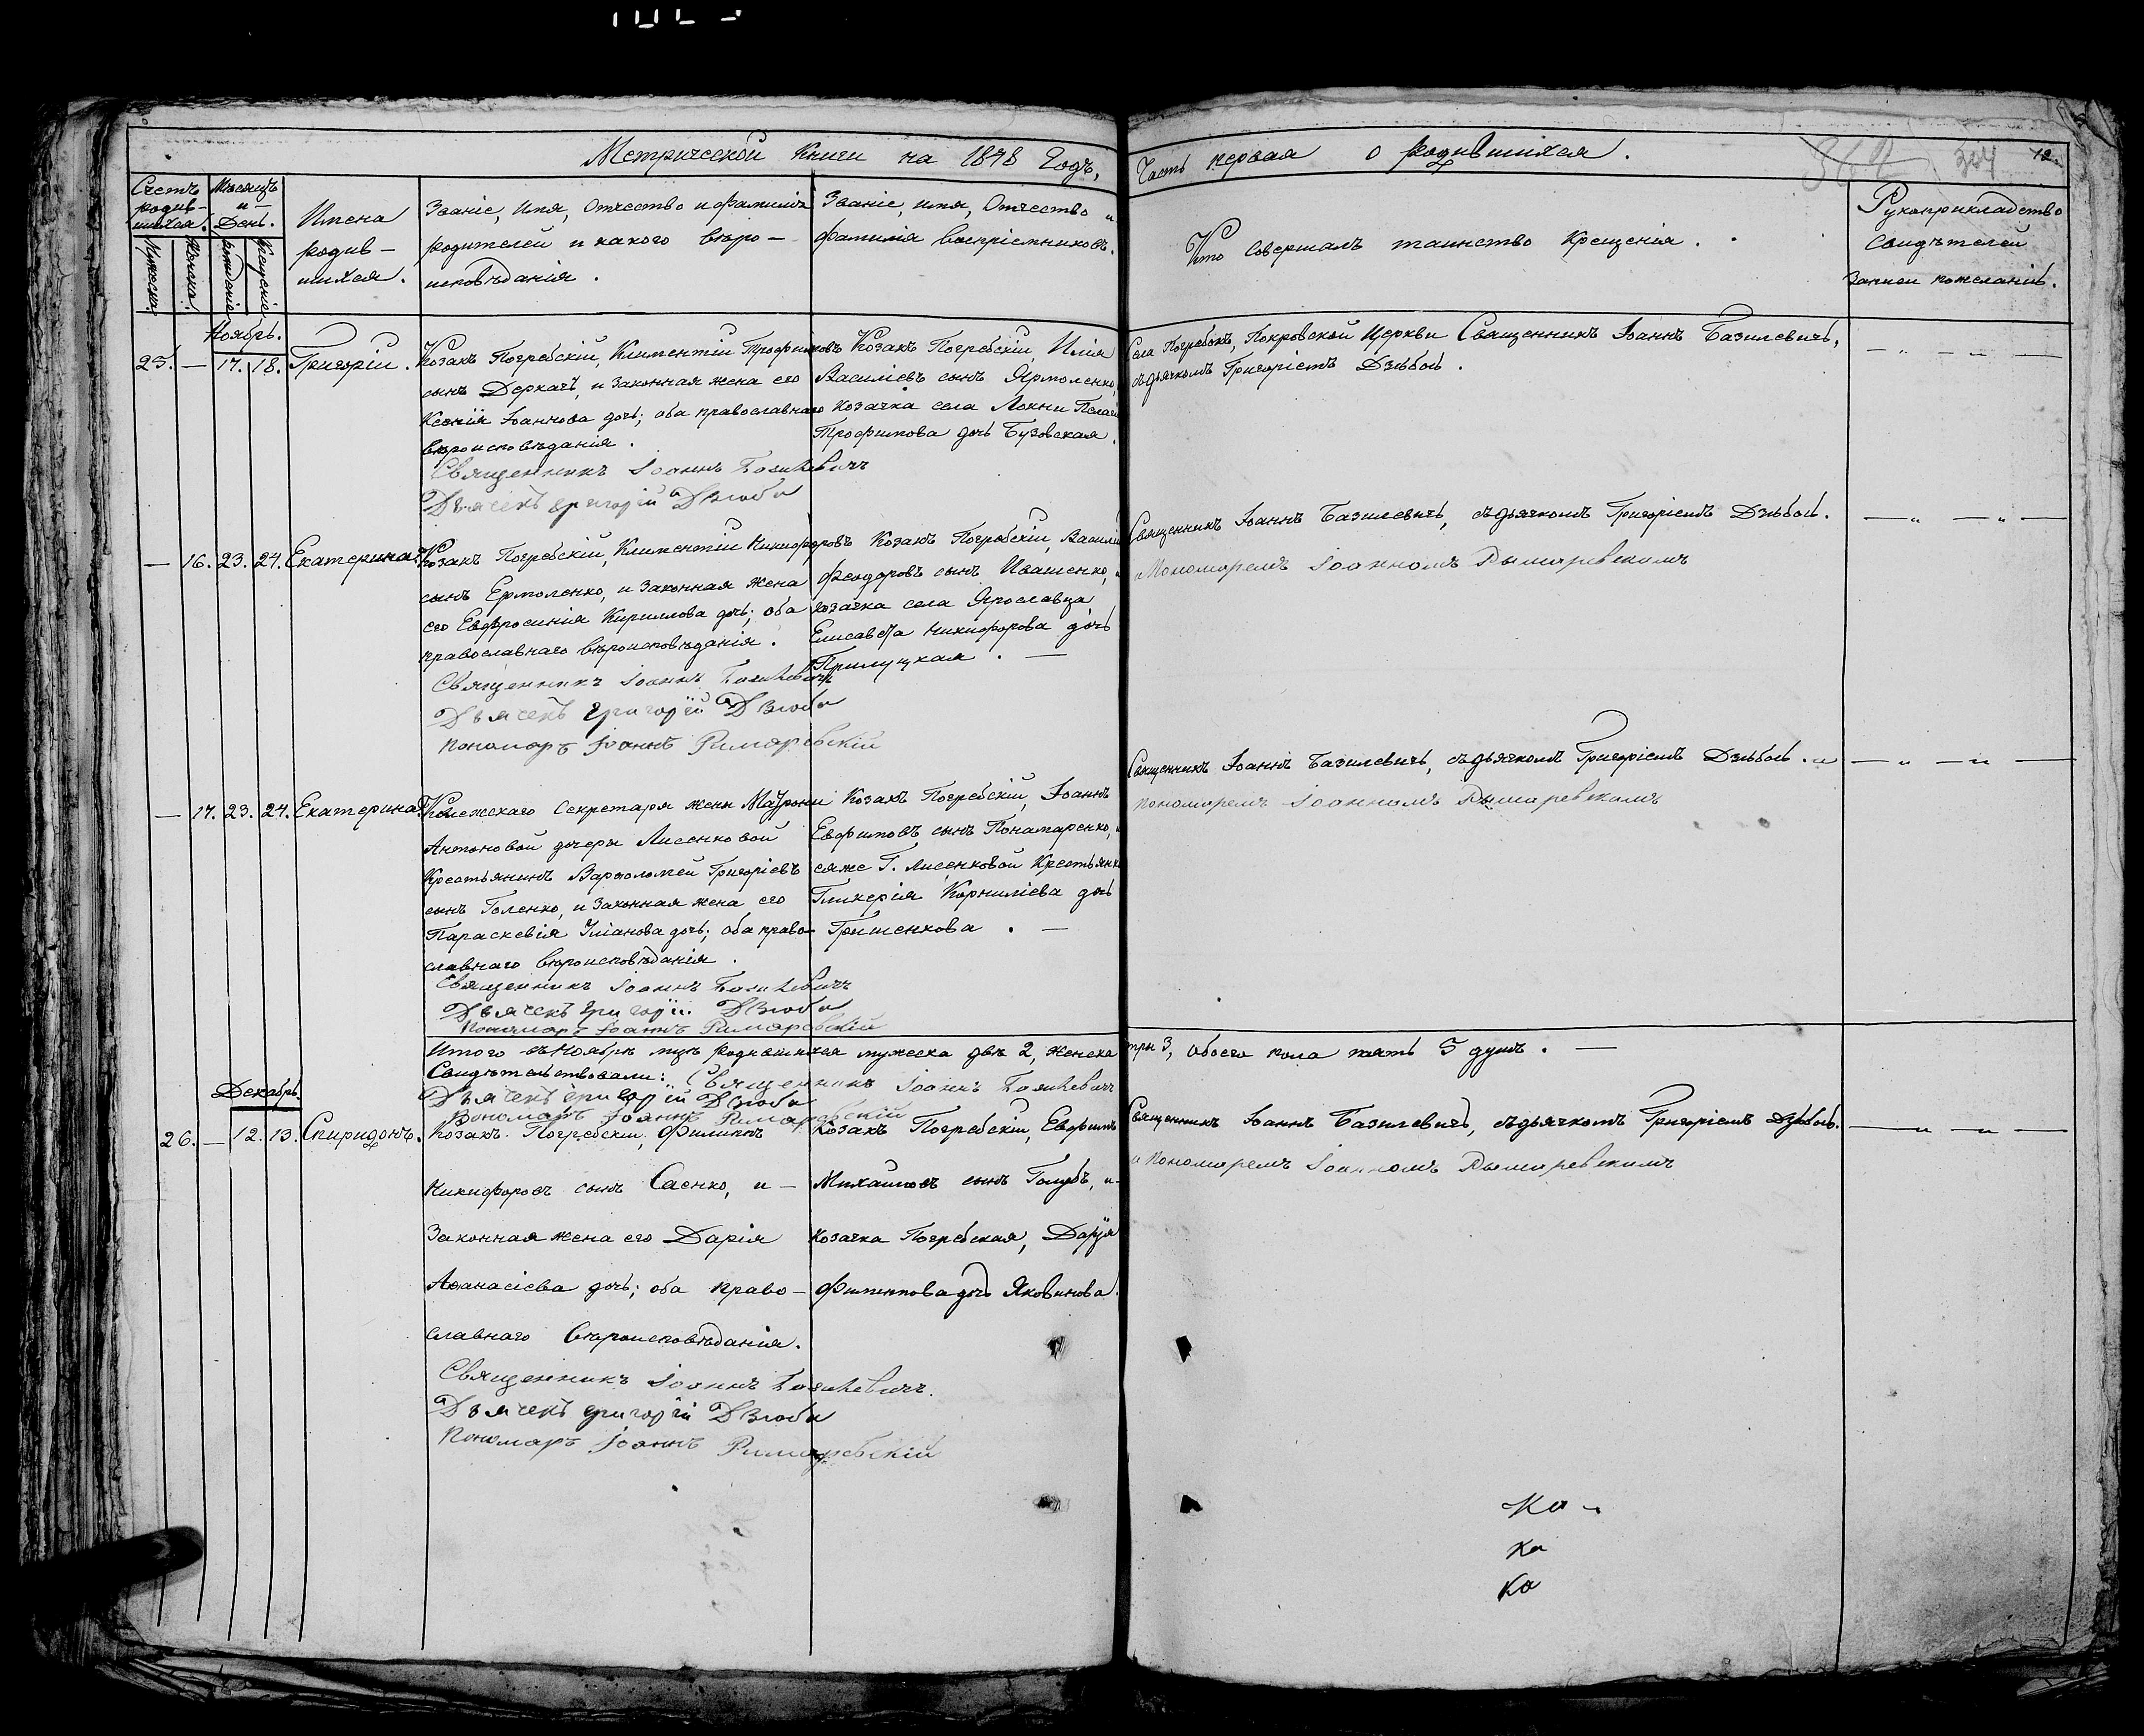 Метрической Книги на 1848 Годъ,
Часть первая о родившихся.
364 12.
Счетъ родив-шихся.
Мужеска.
Женска.
Мѣсяцъ и День.
рожденіе
Крещеніе
Имена
родив-
шихся.
Званіе, Имя, Отчество и фамилія
родителей и какого вѣро-
исповѣданія.
Званіе, имя, Отчество и
фамилія воспріемниковъ.
Кто совершалъ таинство Крещенія.
Рукоприкладство
свидѣтелей
записи по желанію.
Ноябрь.
25. — 17. 18. Григорій.
Козакъ Погребскій, Климентій Трофимовъ
сынъ Деркачъ, и Законная жена его
Ксенія Іоаннова дочь; оба православнаго
вѣроисповѣданія.
Священникъ Іоаннъ Базилевичъ
Дьячекъ Григорій Дзюба
Козакъ Погребскій, Илія
Василіевъ сынъ Ярмоленко,
козачка села Локни Пелагія
Трофимова дочь Бузовская.
Села Погребокъ, Покровской Церкви Священникъ Іоаннъ Базилевичь,
съ дьячкомъ Григоріемъ Дзюбою.
— 16. 23. 24. Екатерина.
Козакъ Погребскій, Климентій Никифоровъ
сынъ Ермоленко, и Законная жена
его Евфросинія Кириллова дочь; оба
православнаго вѣроисповѣданія.
Священникъ Іоаннъ Базилевичъ
Дьячекъ Григорій Дзюба
Пономарь Іоаннъ Римаревскій
Козакъ Погребскій, Василій
Феодоровъ сынъ Ивашенко, и
козачка села Ярославца
Елисавета Никифорова дочь
Прилуцкая. —
Священникъ Іоаннъ Базилевичь, съ дьячкомъ Григоріемъ Дзюбою.
и Пономаремъ Іоанномъ Рымаревскимъ
— 17. 23. 24. Екатерина.
Колежскаго Секретаря жены Матроны
Антоновой дочери Лисенковой
Крестьянинъ Варфоломей Григоріевъ
сынъ Голенко, и Законная жена его
Параскевія Уліанова дочь; оба право-
славнаго вѣроисповѣданія.
Священникъ Іоаннъ Базилевичъ
Дьячекъ Григорій Дзюба
Пономарь Іоаннъ Римаревскій
Козакъ Погребскій, Іоаннъ
Евфимовъ сынъ Понамаренко, и
сяже Г. Лисенковой Крестьянка
Гликерія Корниліева дочь
Гришенкова. —
Священникъ Іоаннъ Базилевичь, съ дьячкомъ Григоріемъ Дзюбою. и
Пономаремъ Іоанномъ Рымаревскимъ
Итого въ Ноябрѣ м-цѣ родившихся мужеска два 2, женска три 3, обоего пола пять 5 душъ. —
Свидѣтельствовали: Священникъ Іоаннъ Базилевичъ
Дьячекъ Григорій Дзюба
Пономарь Іоаннъ Римаревскій
Декабрь
26. — 12. 13. Спиридонъ.
Козакъ Погребскій, Филиппъ
Никифоровъ сынъ Саенко, и —
Законная жена его Дарія
Аѳанасіева дочь; оба право-
славнаго вѣроисповѣданія.
Священникъ Іоаннъ Базилевичъ.
Дьячекъ Григорій Дзюба
Пономарь Іоаннъ Римаревскій
Козакъ Погребскій, Евфимъ
Михаиловъ сынъ Голубъ, и-
козачка Погребская, Дарія
Филиппова дочь Яковинова.
Священникъ Іоаннъ Базилевичь, съ дьячкомъ Григоріемъ Дзюбою.
и Пономаремъ Іоанномъ Рымаревскимъ
Ка
ка
ка